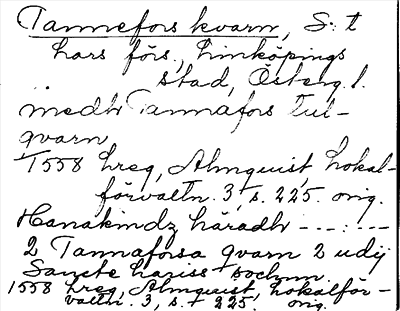 Tannefors kvarn, S:t
Lars förs., Linköpings
stad, Österg. l.
medh Tannafors Tul-
qvarn
1558 Lreg, Almquist, Lokal-
förvaltn. 3, s. 225. orig.
Hanakindz häradh -----
2 Tannaforsa qvarn 2 udij
Sancte Lariss sochnn.
1558 Lreg, Almquist, Lokalför-
valtn. 3, s. 225. orig.